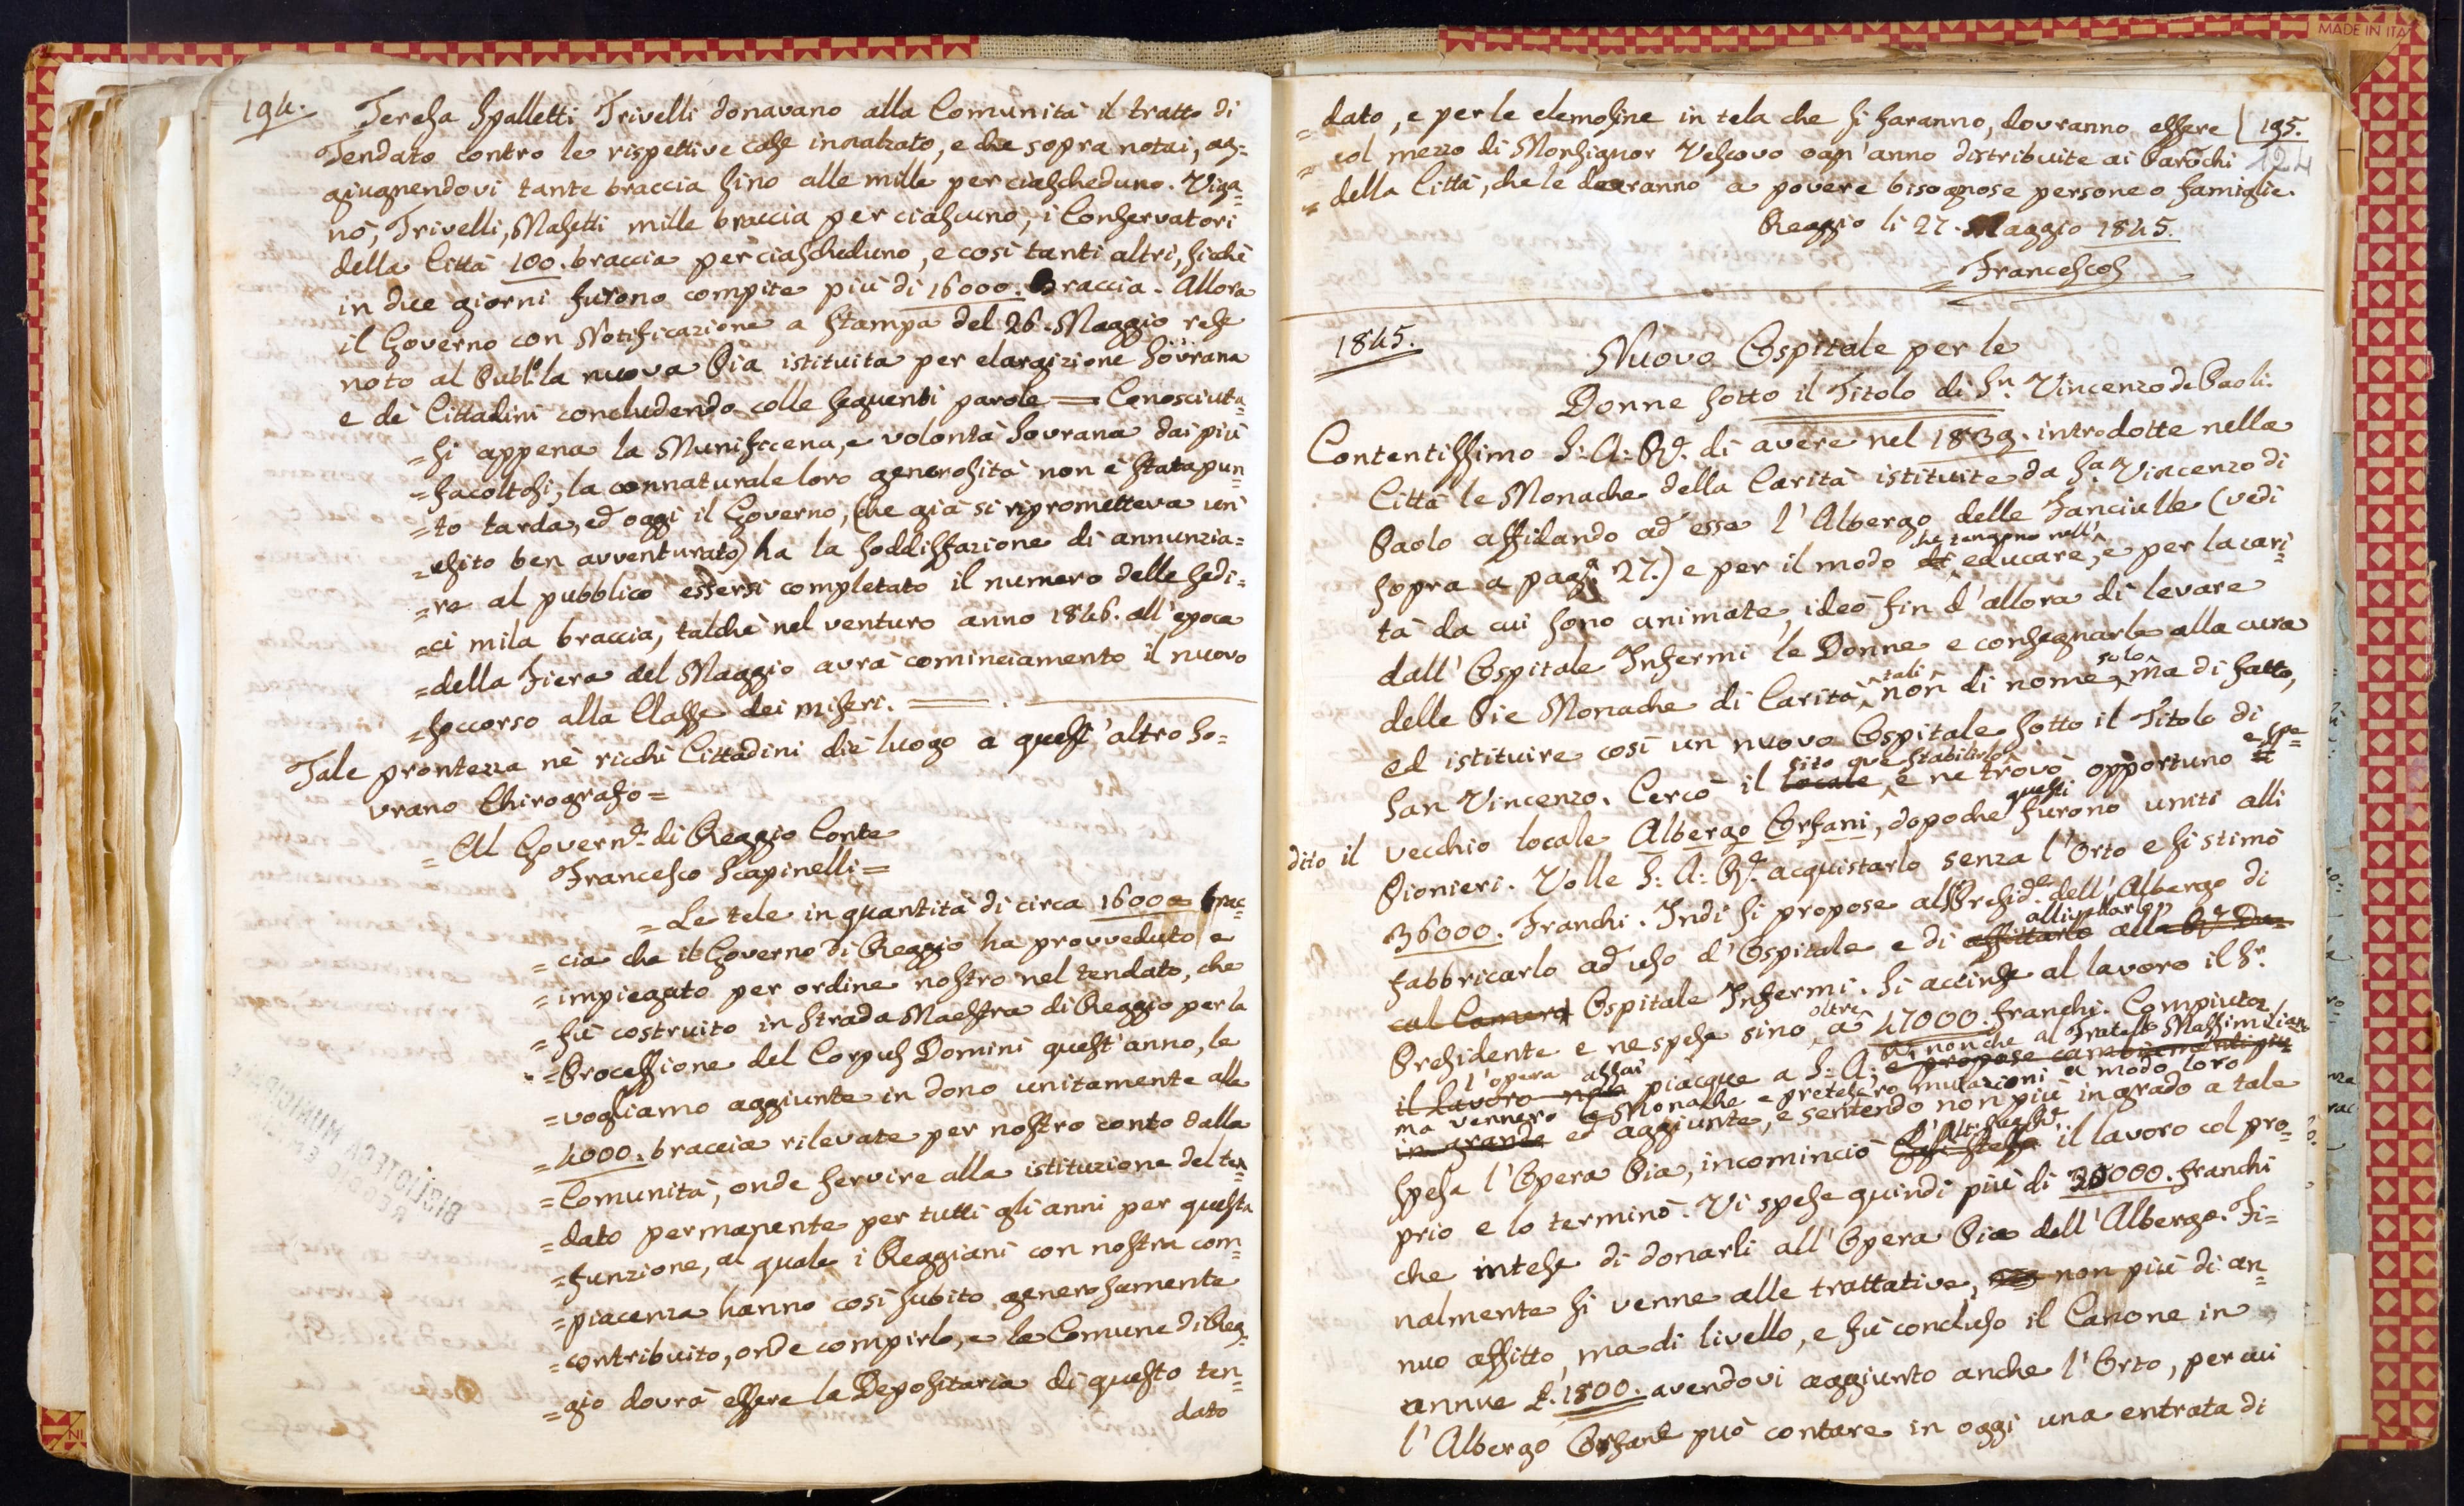 194.
Teresa Spalletti Trivelli donavano alla Comunità il tratto di
Tendato contro le rispettive case innalzato, e che sopra notai, ag=
giugnendovi tante braccia sino alle mille per ciascheduno. Viga=
nò, Trivelli, Masetti mille braccia per ciascuno, i Conservatori
della Città 100. braccia per ciascheduno, e così tanti altri, sicchè
in due giorni furono compite più di 16000. Braccia. Allora
il Governo con Notificazione a stampa del 26. Maggio rese
noto al Publ.º la nuova Pia istituita per elargizione sovrana
e dei Cittadini concludendo colle seguenti parole = Conosciuta=
=si appena la Munificena, e volontà sovrana dai più
=facoltosi, la connaturale loro generosità non è stata pun=
=to tarda, ed oggi il Governo, (che già si riprometteva un'
=esito ben avventurato) ha la soddisfazione di annunzia=
=re al pubblico essersi completato il numero delle sedi=
=ci mila braccia, talchè nel venturo anno 1846. all'epoca
=della Fiera del Maggio avrà cominciamento il nuovo
=soccorso alla Classe dei miseri. =
Tale prontezza nè ricchi Cittadini diè luogo a quest'altro so=
vrano Chirografo =
= Al Govern.e di Reggio Conte
Francesco Scapinelli =
= Le tele in quantità di circa 16000 brac=
= cia che il Governo di Reggio ha provveduto e
= impiegato per ordine nostro nel tendato, che
= fù costruito in Strada Maestra di Reggio per la
= Processione del Corpus Domini quest'anno, le
= vogliamo aggiunte in dono unitamente alle
= 4000. braccia rilevate per nostro conto dalla
= Comunità, onde servire alla istituzione del ten=
= dato permanente per tutti gli anni per questa
= funzione, al quale i Reggiani con nostra com=
= piacenza hanno così subito generosamente
= contribuito, onde compirlo, e la Comune di Reg=
= gio dovrà essere la Depositaria di questo ten=
dato
BIBLIOTECA MUNICIPALE
REGGIO EMILIA
195.
124
= dato, e per le elemosine in tela che si faranno, dovranno essere
= col mezzo di Monsignor Vescovo ogn'anno distribuite ai Parochi
= della Città, che le daranno a povere bisognose persone o famiglie.
Reggio li 27. Maggio 1845.
= Francesco
1845.
Nuovo Ospitale per le
Donne sotto il Titolo di S.n Vincenzo de Paoli.
Contentissimo S: A: R.e di avere nel 1839. introdotte nella
Città le Monache della Carità istituite da S.n Vincenzo di
Paolo affidando ad esse l'Albergo delle Fanciulle (vedi
che tengono nell'
sopra a pag.a 27.) e per il modo di educare, e per la cari=
tà da cui sono animate, ideò fin d'allora di levare
dall'Ospitale Infermi le Donne e consegnarle alla cura
tali solo
delle Pie Monache di Carità, non di nome, ma di fatto,
ed istituire così un nuovo Ospitale sotto il Titolo di
sito ove stabilirlo e spe=
San Vincenzo. Cercò il locale, e ne trovò opportuno e
questi
dito il vecchio locale Albergo Orfani, dopochè furono uniti alli
Pionieri. Volle S: A: R.e acquistarlo senza l'Orto e si stimò
36000. Franchi. Indi si propose al Presid.e dell'Albergo di
allivellarlo
fabbricarlo ad uso d'Ospitale e di affittarlo alla R.e Du=
cal Camera Ospitale Infermi. Si accinse al lavoro il S.r
oltre
Presidente e ne spese sino a 47000. franchi. Compiuta
l'opera assai R.e nonchè al Fratello Massimiliano
il lavoro nella piacque a S: A: e propose cambiamenti più
ma vennero le Monache e pretesero mutazioni a modo loro
in grande ed aggiunte, e sentendo non più in grado a tale
L'Alt: sua R.e
spesa l'Opera Pia, incominciò Egli stesso il lavoro col pro=
prio e lo terminò. Vi spese quindi più di 30000. franchi
che intese di donarli all'Opera Pia dell'Albergo. Fi=
nalmente si venne alle trattative, non più di an=
nuo affitto, ma di livello, e fù concluso il Canone in
annue £. 1800. avendovi aggiunto anche l'Orto, per cui
l'Albergo Orfani può contare in oggi una entrata di
MADE IN ITA